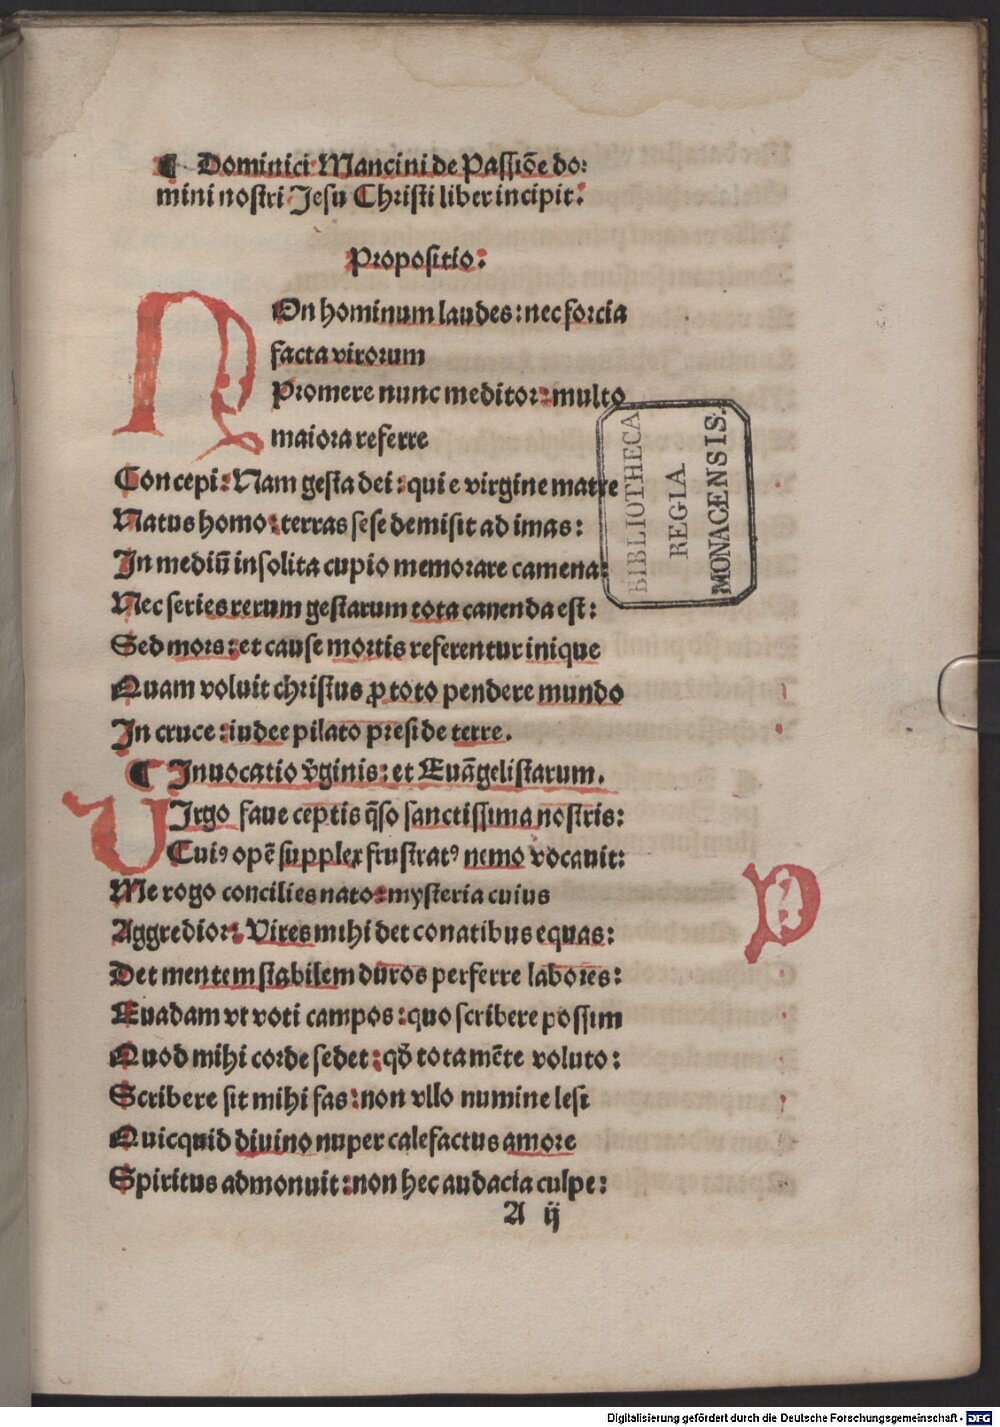 ¶ Dominici Mancini de Passiōe do:
mini nostri Jesu Christi liber incipit:
Propositio:
NOn hominum laudes: nec forcia
facta virorum
Promere nunc meditor: multo
maiora referre
Concepi: Nam gesta dei: qui e virgine matre
Natus homo: terras sese demisit ad imas:
In mediū insolita cupio memorare camena:
Nec series rerum gestarum tota canenda est:
Sed mors: et cause mortis referentur inique
Quam voluit christus ꝓ toto pendere mundo
In cruce: iudee pilato preside terre.
¶ Inuocatio v̄ginis: et Euāgelistarum.
VIrgo faue ceptis q̄so sanctissima nostris:
Cuiꝰ opē supplex frustratꝰ nemo vocauit:
Me rogo concilies nato: mysteria cuius
Aggredior: Vires mihi det conatibus equas:
Det mentem stabilem duros perferre labores:
Euadam vt voti campos: quo scribere possim
Quod mihi corde sedet: qđ tota mēte voluto:
Scribere sit mihi fas: non vllo numine lesi
Quicquid diuino nuper calefactus amore
Spiritus admonuit: non hec audacia culpe:
A ij
BIBLIOTHECA
REGIA
MONACENSIS.
Digitalisierung gefördert durch die Deutsche Forschungsgemeinschaft - DFG